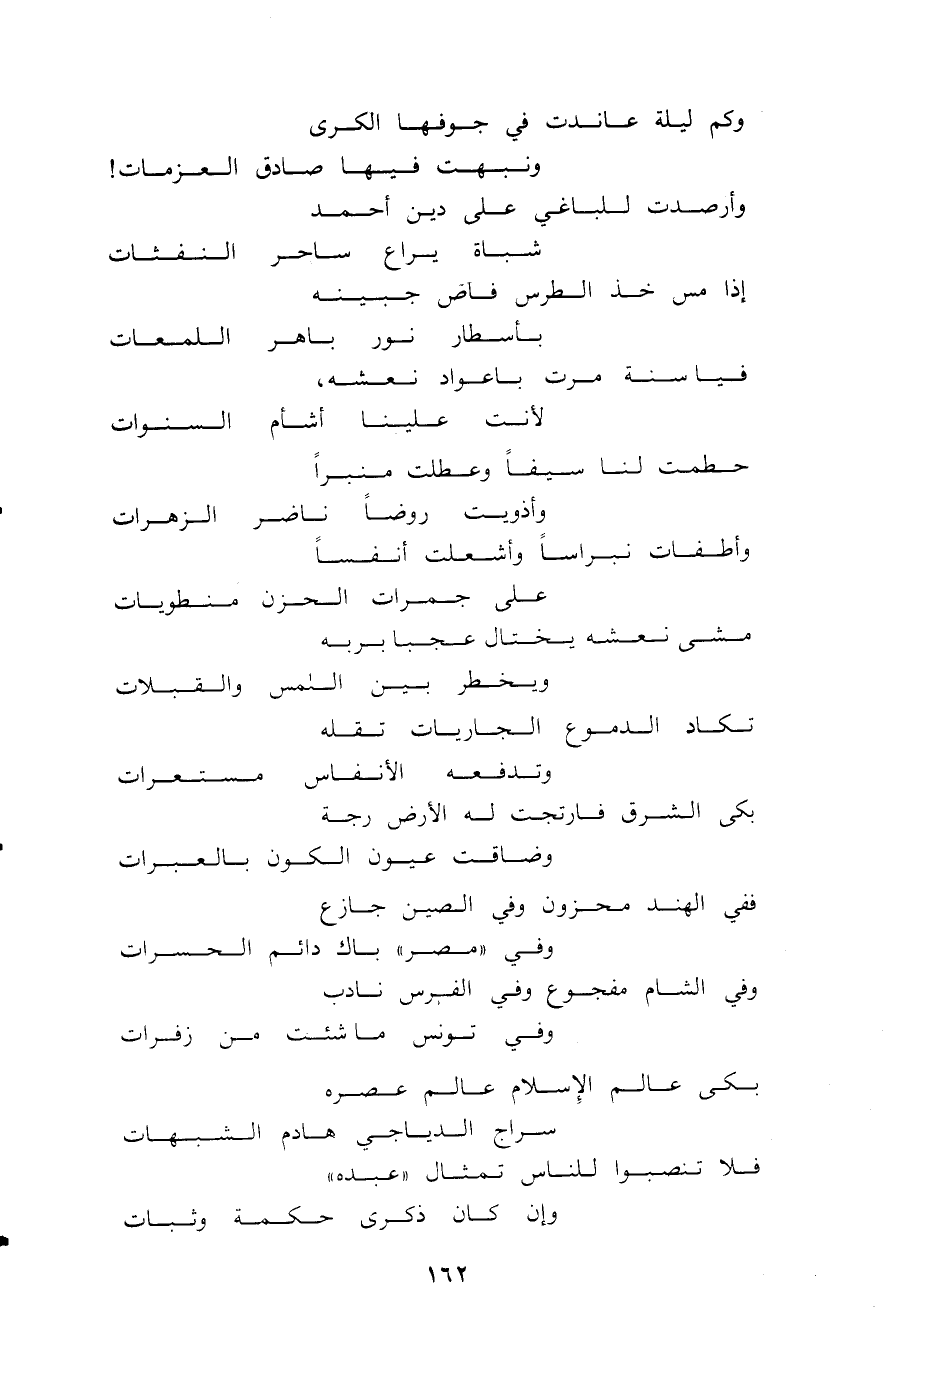 وكم ليلة عاندت في جوفها الكرى
ونبهت فيها صادق العزمات!
وأرصدت للباغي على دين أحمد
شباة يراع ساحر النفثات
إذا مس خد الطرس فاض جبينه
بأسطار نور باهر اللمعات
فيا سنة مرت بأعواد نعشه،
لأنت علينا أشأم السنوات
حطمت لنا سيفاً وعطلت منبراً
وأذويت روضاً ناضر الزهرات
وأطفأت نبراساً وأشعلت أنفساً
على جمرات الحزن منطويات
مشى نعشه يختال عجبا بربه
ويخطر بين اللمس والقبلات
تكاد الدموع الجاريات تقله
وتدفعه الأنفاس مستعرات
بكى الشرق فارتجت له الأرض رجة
وضاقت عيون الكون بالعبرات
ففي الهند محزون وفي الصين جازع
وفي «مصر» باك دائم الحسرات
وفي الشام مفجوع وفي الفرس نادب
وفي تونس ما شئت من زفرات
بكى عالم الإسلام عالم عصره
سراج الدياجي هادم الشبهات
فلا تنصبوا للناس تمثال «عبده»
وإن كان ذكرى حكمة وثبات
١٦٢